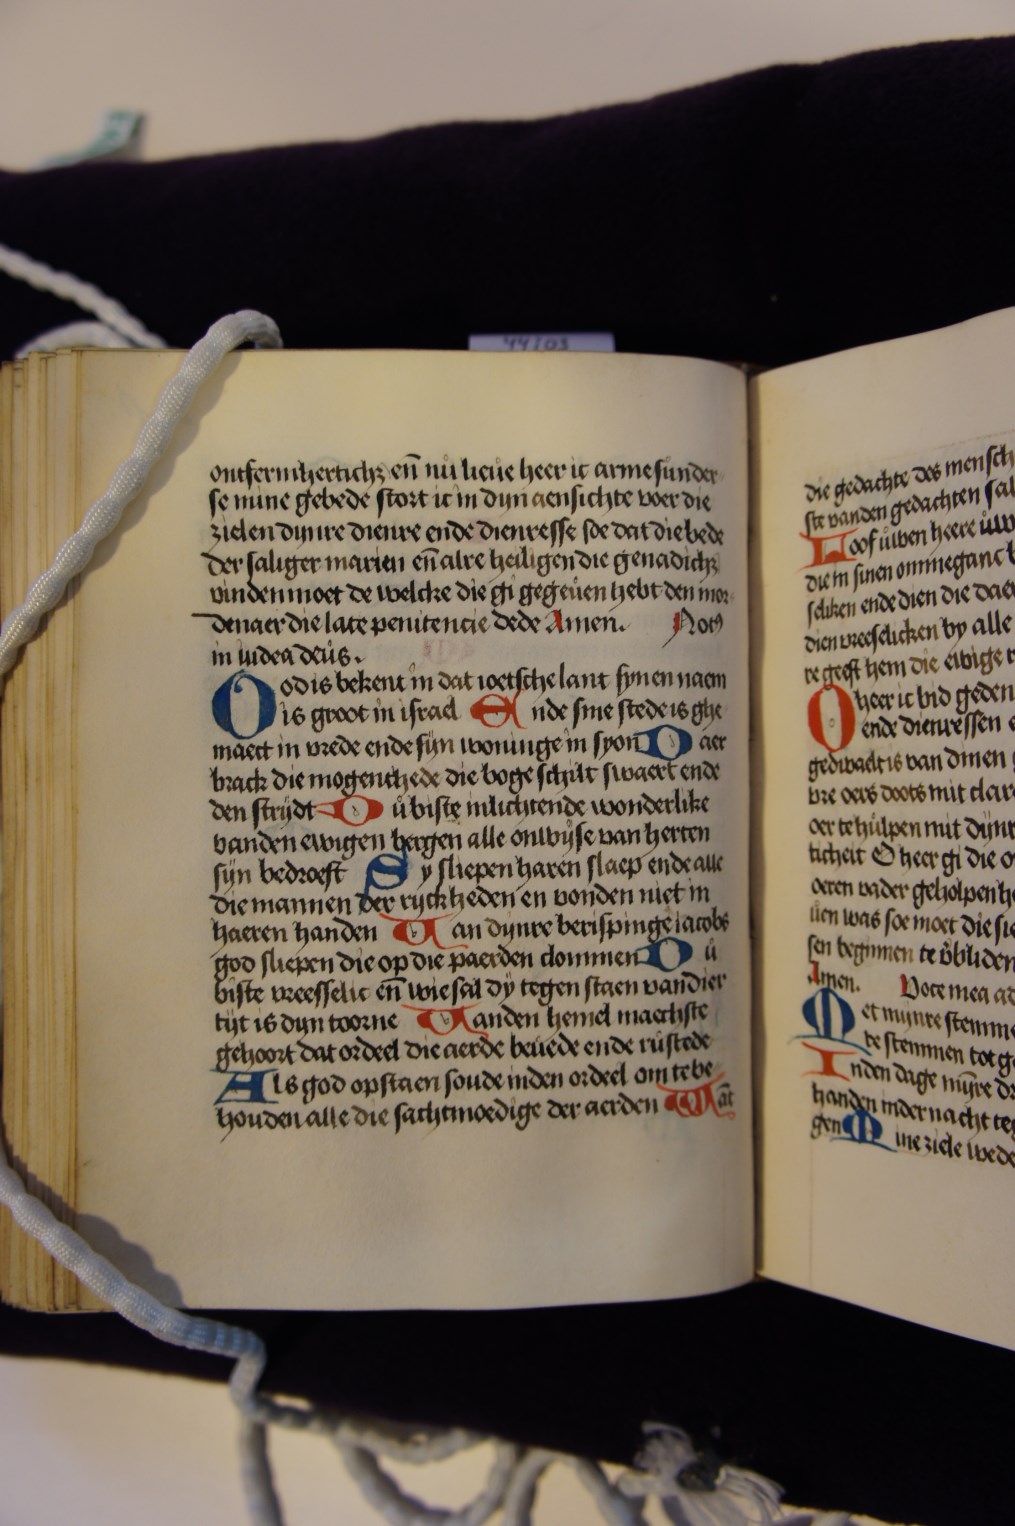 44203
ontfermhertichz en̄ nu lieue heer ic arme sunder
se mine gebede stort ic in dyn aensichte voer die
zielen dynre dienre ende dienresse soe dat die bede
der saliger marien en̄ alre heiligen die genadichz
vinden moet de welcke die gi gegeuen hebt den mor
denaer die late penitencie dede Amen. Notꝰ
in iudea deus.
God is bekent in dat ioetsche lant syn en naem
is groot in israel Ende sine stede is ghe
maect in vrede ende sijn woninge in syon Daer
brack die mogenthede die boge schilt swaert ende
den strijdt Du biste inlichtende wonderlike
vanden ewigen bergen alle onwijse van herten
sijn bedroeft Sy sliepen haren slaep ende alle
die mannen der ryckheden en vonden niet in
haeren handen Van dynre berispinge iacobs
god sliepen die op die paerden clommen Du
biste vreesselic en̄ wie sal dy tegen staen van dier
tijt is dyn toorne Vanden hemel maechste
gehoort dat ordeel die aerde beuede ende rustede
Als god opstaen soude inden ordeel om te be
houden alle die sachtmoedige der aerden Wāt
die gedachte des mensch
ste vanden gedachten sal
Loof uwen heere uw
die in sinen ommeganc b
seliken ende dien die dae
dien vreeselicken by alle
re geeft hem die ewige r
O heer ic bid geden
ende dienressen
gedwaelt is van dinen
vre oers doots mit clar
oer te hulpen mit dynr
ticheit O heer gi die o
oeren vader geholpen h
uen was soe moet die sie
sen beginnen te vbliden
Amen. Voce mea ad
Met mynre stemme
re stemmen tot g
Inden dage mynre dr
handen inder nacht teg
gen Mine ziele wede